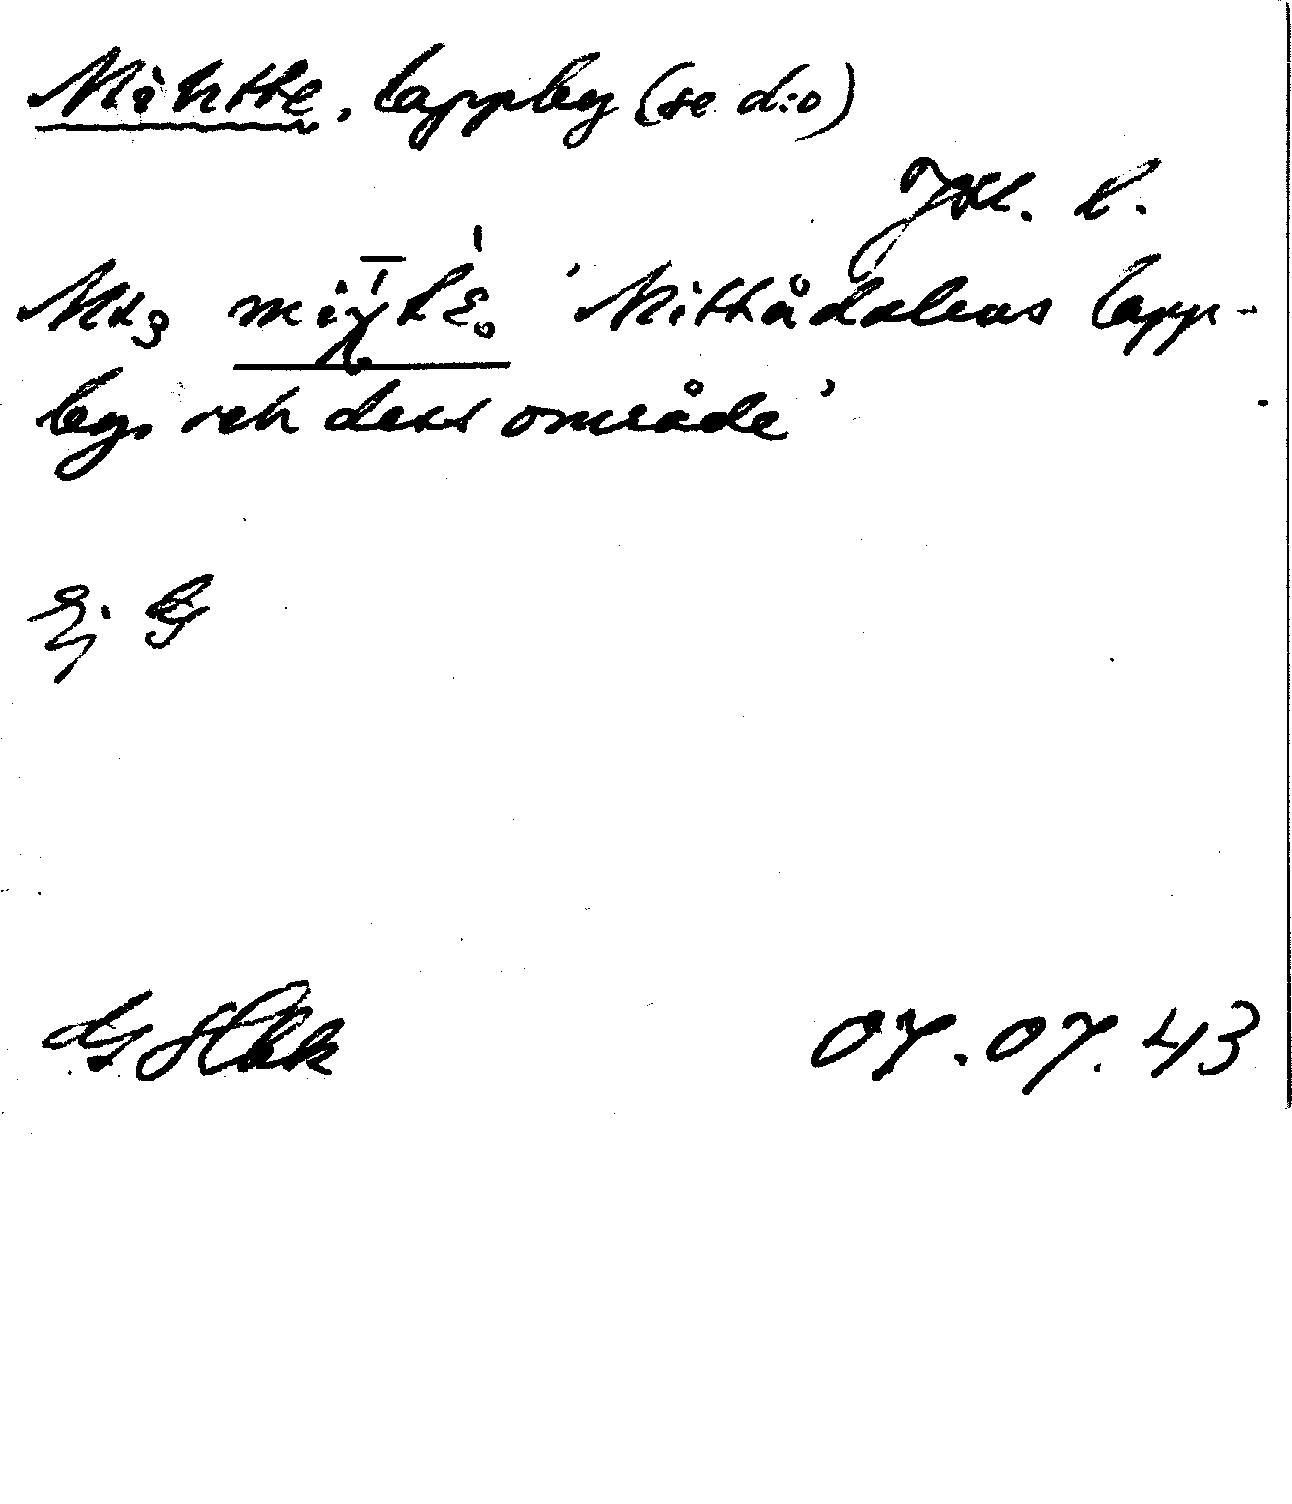 Mihtte, lappby (se d:o)
Jkl. l.
miχtε 'Mittådalens lapp-
by och dess område'
Ej G
07.07.43